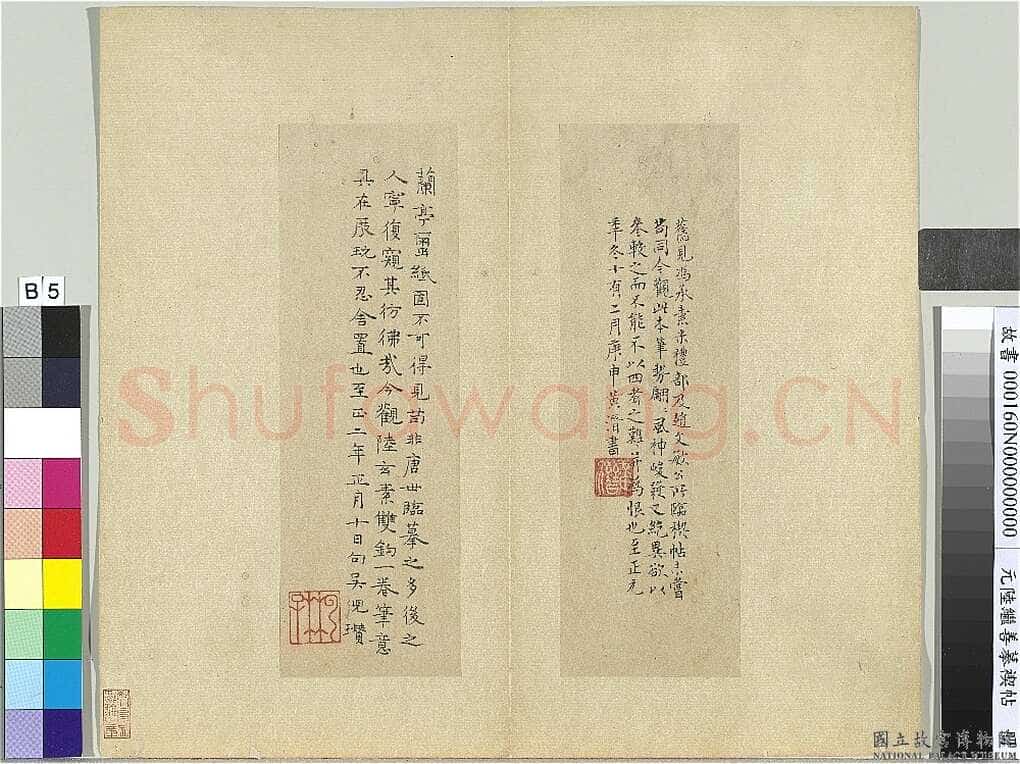 舊見馮承素米禮部及趙文敏公所臨禊帖未嘗
苟同今觀此本筆勢翩〻風神峻發又絶異欲以
叅較之而不能不以四者之難并為恨也至正元
年冬十有二月庚申黃溍書
蘭亭繭紙固不可得見苟非唐世臨摹之多後之
人寧復窺其彷彿哉今觀陸玄素雙鈎一卷筆意
具在展玩不忍舍置也至正二年正月十日句吳倪瓚
B 5
故書 000160N000000000
元陸繼善摹禊帖
國立故宮博物院
NATIONAL PALACE MUSEUM
Shufawang.CN